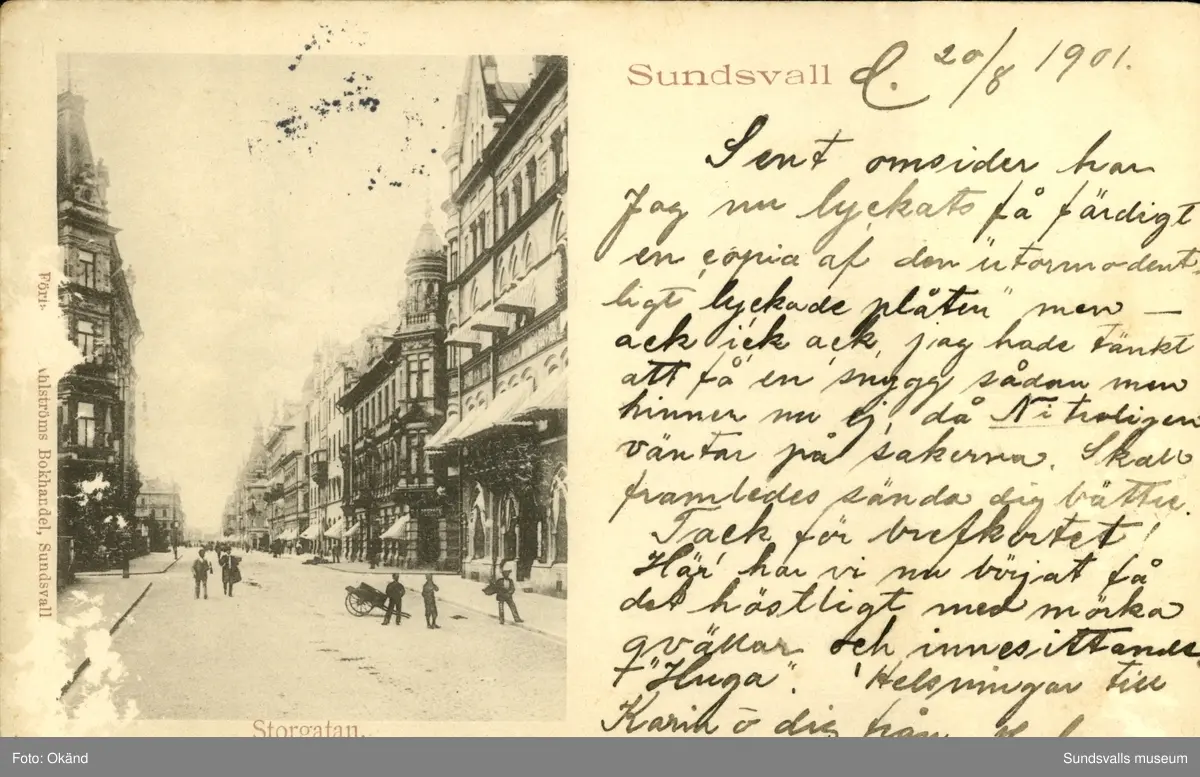 Sundsvall d. 20/8 1901.
Sent omsider har
jag nu lyckats få färdigt
en copia af den "utormodent-
ligt lyckade plåten" men —
ack, ack, ack, jag hade tänkt
att få en snygg sådan men
hinner nu ej, då Ni troligen
väntar på sakerna. Skall
framledes sända dig bättre.
Tack för brefkortet!
Här har vi nu börjat få
det höstligt med mörka
qvällar och innesittande
"Huga". Helsningar till
Karin o dig från
Storgatan.
Förl. Ahlströms Bokhandel, Sundsvall
Foto: Okänd
Sundsvalls museum